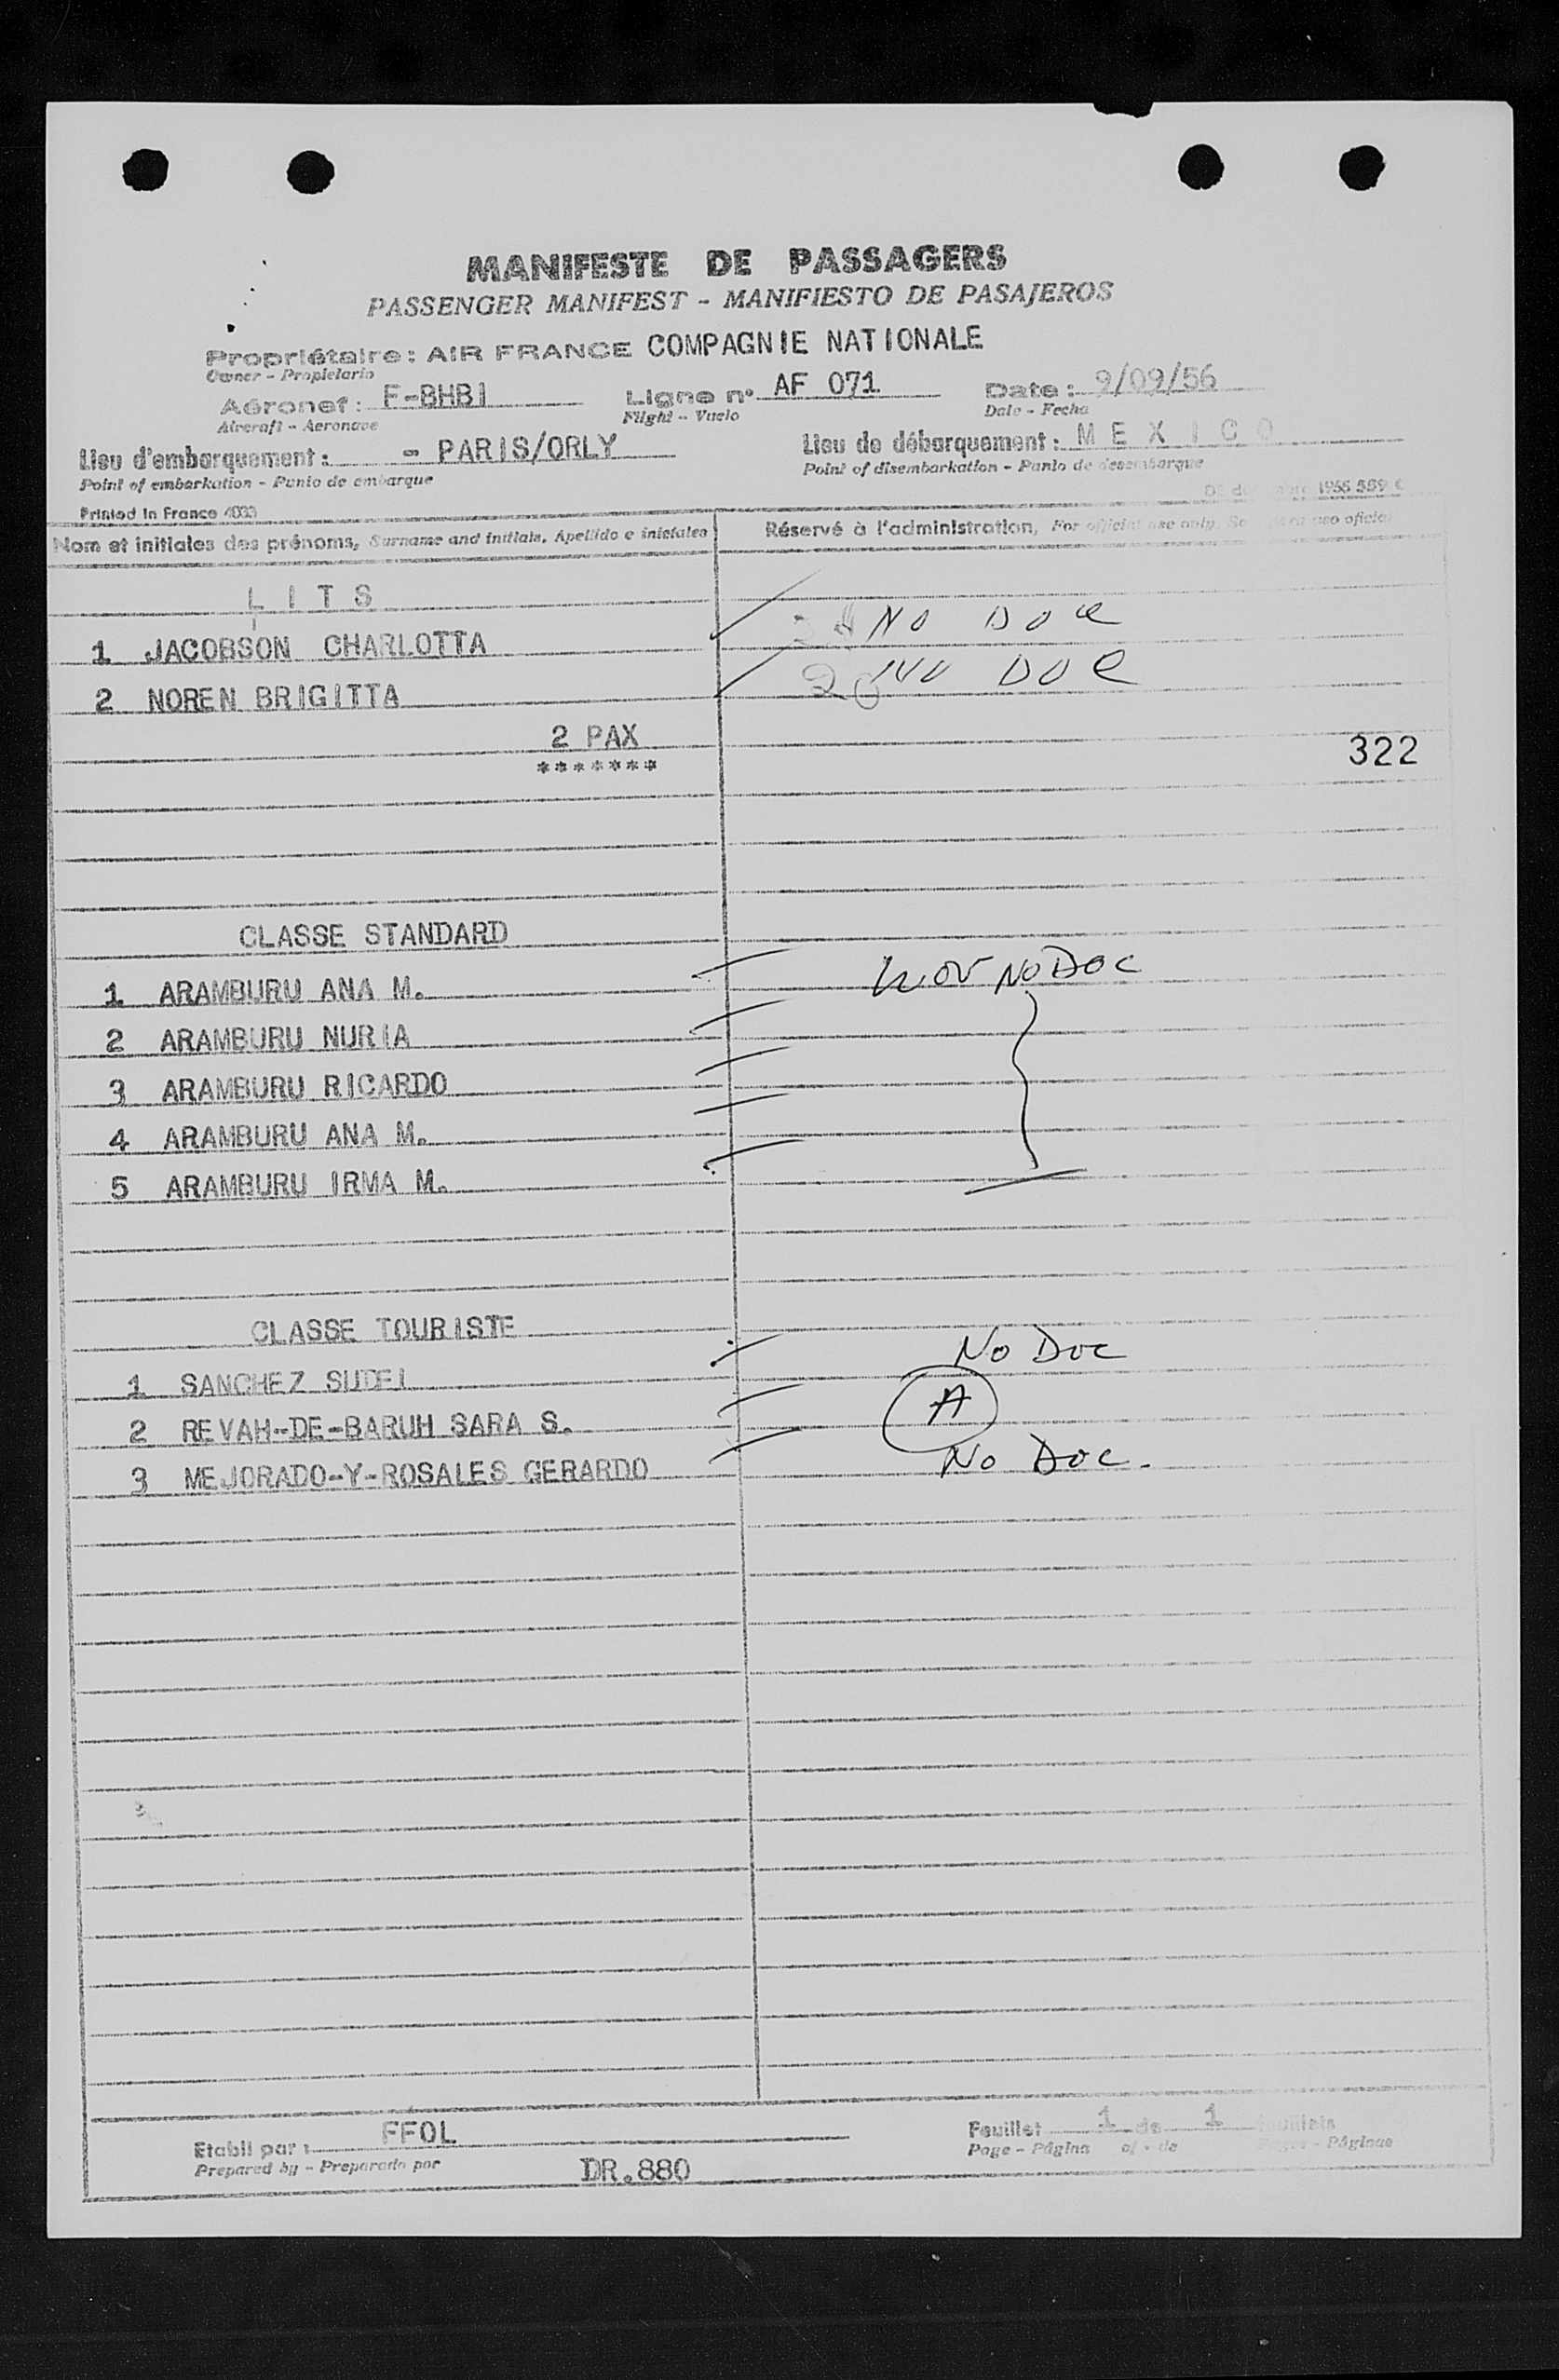 MANIFESTE DE PASSAGERS
PASSENGER MANIFEST - MANIFIESTO DE PASAJEROS
Propriétaire : AIR FRANCE COMPAGNIE NATIONALE
Owner - Propietario
Aéronef : F-BHBI Ligne n° AF 071 Date : 9/09/56
Aircraft - Aeronave Flight - Vuelo Date - Fecha
Lieu d'embarquement : - PARIS/ORLY Lieu de débarquement : MEXICO
Point of embarkation - Punto de embarque Point of disembarkation - Punto de desembarque
Printed in France 4033 1956 589
Nom et initiales des prénoms, Surname and initials, Apellido e iniciales Réservé à l'administration, For official use only, uso oficial
LITS
1 JACOBSON CHARLOTTA NO DOC
2 NOREN BRIGITTA NO DOC
2 PAX
*******
322
CLASSE STANDARD
1 ARAMBURU ANA M. NO DOC
2 ARAMBURU NURIA
3 ARAMBURU RICARDO
4 ARAMBURU ANA M.
5 ARAMBURU IRMA M.
CLASSE TOURISTE
1 SANCHEZ No Doc
2 REVAH-DE-BARUH SARA S. A
3 MEJORADO-Y-ROSALES GERARDO No Doc.
Etabli par : FFOL Feuillet 1 de 1 feuillets
Prepared by - Preparado por DR.880 Page - Página of - de Pages - Páginas